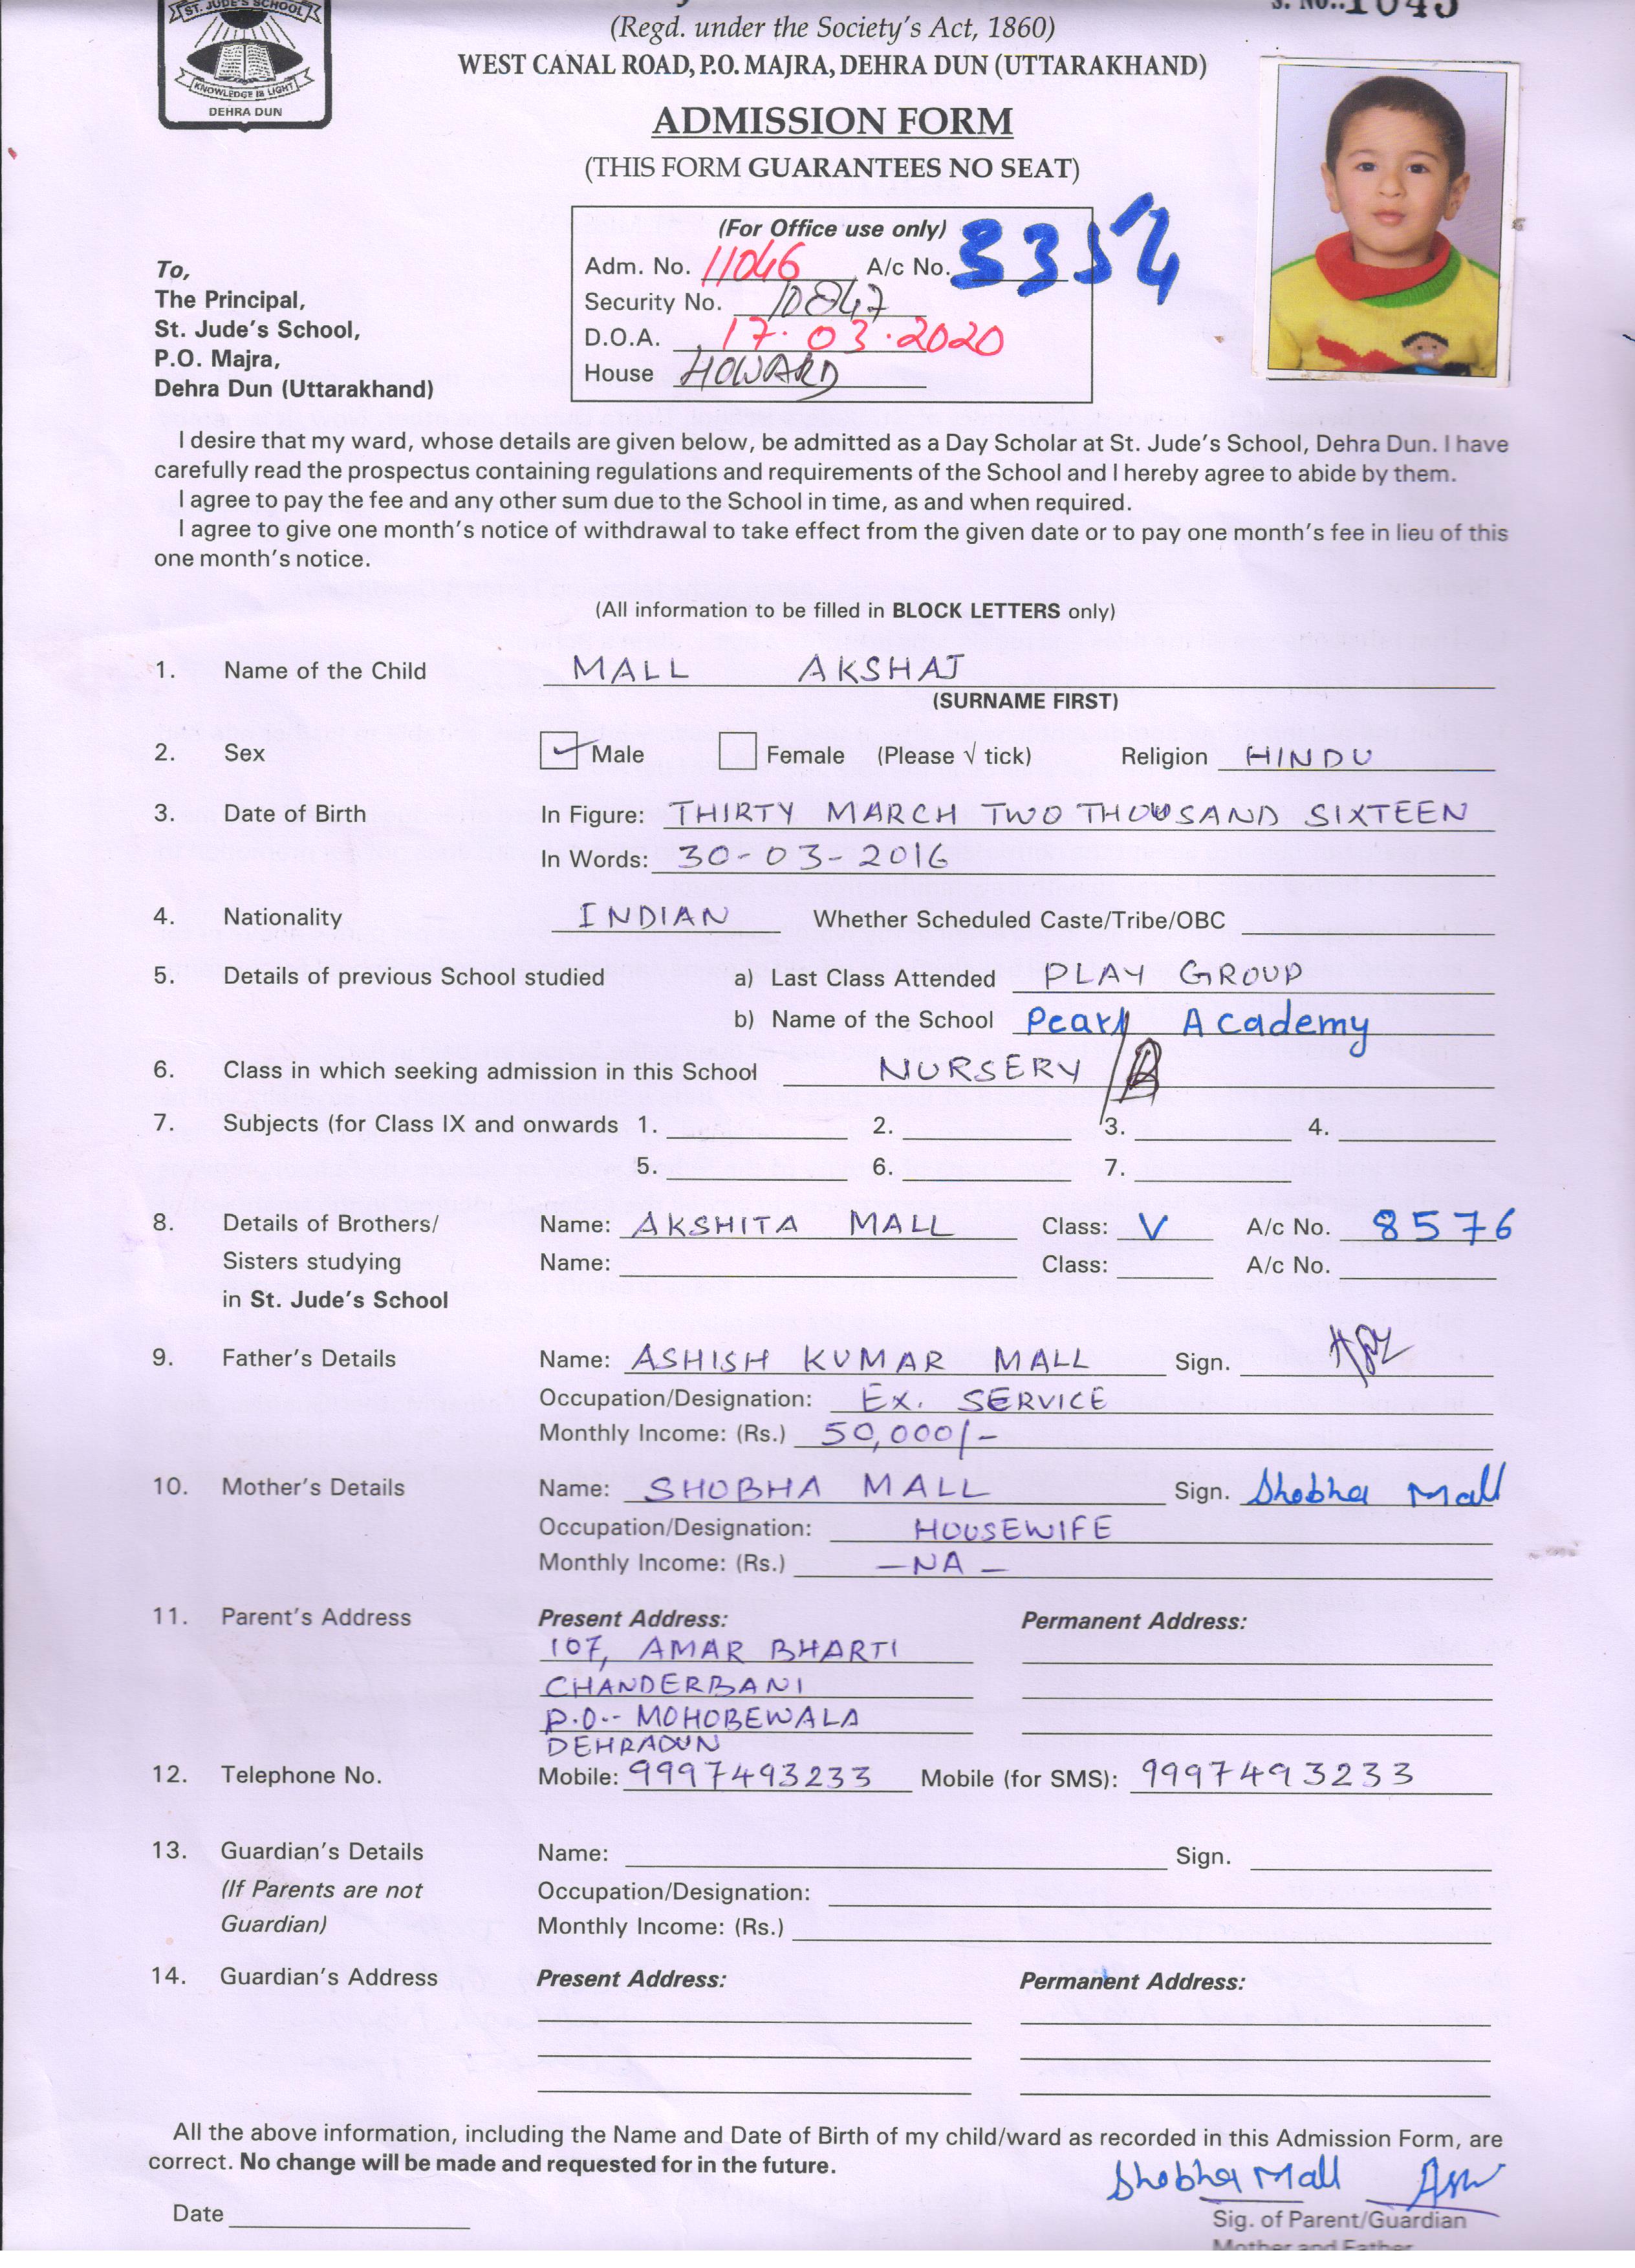 ST. JUDE'S SCHOOL
KNOWLEDGE IS LIGHT
DEHRA DUN
S. No.. 1045
(Regd. under the Society's Act, 1860)
WEST CANAL ROAD, P.O. MAJRA, DEHRA DUN (UTTARAKHAND)
ADMISSION FORM
(THIS FORM GUARANTEES NO SEAT)
(For Office use only)
Adm. No. 11046 A/c No. 3354
Security No. 10847
D.O.A. 17.03.2020
House HOWARD
To,
The Principal,
St. Jude's School,
P.O. Majra,
Dehra Dun (Uttarakhand)
I desire that my ward, whose details are given below, be admitted as a Day Scholar at St. Jude's School, Dehra Dun. I have
carefully read the prospectus containing regulations and requirements of the School and I hereby agree to abide by them.
I agree to pay the fee and any other sum due to the School in time, as and when required.
I agree to give one month's notice of withdrawal to take effect from the given date or to pay one month's fee in lieu of this
one month's notice.
(All information to be filled in BLOCK LETTERS only)
1. Name of the Child MALL AKSHAJ
(SURNAME FIRST)
2. Sex Male Female (Please √ tick) Religion HINDU
3. Date of Birth In Figure: THIRTY MARCH TWO THOUSAND SIXTEEN
In Words: 30-03-2016
4. Nationality INDIAN Whether Scheduled Caste/Tribe/OBC
5. Details of previous School studied a) Last Class Attended PLAY GROUP
b) Name of the School Pearl Academy
6. Class in which seeking admission in this School NURSERY /B
7. Subjects (for Class IX and onwards 1. 2. 3. 4.
5. 6. 7.
8. Details of Brothers/ Name: AKSHITA MALL Class: V A/c No. 8576
Sisters studying Name: Class: A/c No.
in St. Jude's School
9. Father's Details Name: ASHISH KUMAR MALL Sign.
Occupation/Designation: EX. SERVICE
Monthly Income: (Rs.) 50,000/-
10. Mother's Details Name: SHOBHA MALL Sign. Shobha Mall
Occupation/Designation: HOUSEWIFE
Monthly Income: (Rs.) -NA-
11. Parent's Address Present Address: Permanent Address:
107, AMAR BHARTI
CHANDERBANI
P.O-- MOHOBEWALA
DEHRADUN
12. Telephone No. Mobile: 9997493233 Mobile (for SMS): 9997493233
13. Guardian's Details Name: Sign.
(If Parents are not Occupation/Designation:
Guardian) Monthly Income: (Rs.)
14. Guardian's Address Present Address: Permanent Address:
All the above information, including the Name and Date of Birth of my child/ward as recorded in this Admission Form, are
correct. No change will be made and requested for in the future.
Shobha Mall
Date
Sig. of Parent/Guardian
Mother and Father